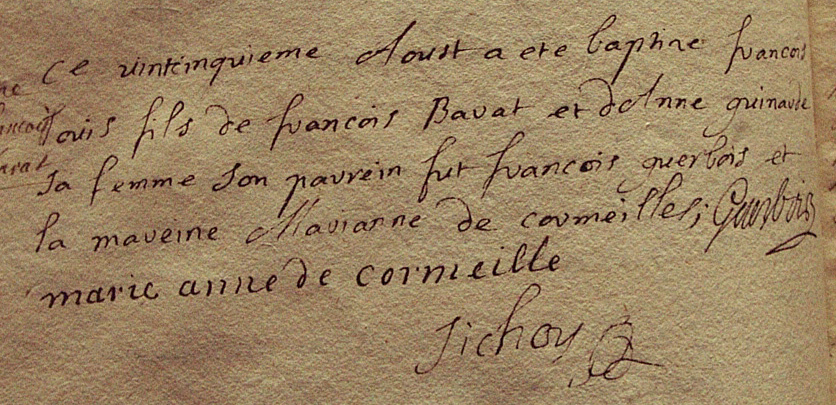 Ce vintcinquieme Aoust a ete baptise francois
Louis fils de francois Barat et dAnne guinaude
sa femme son parrein fut francois guerbois et
la mareine Marianne de cormeilles; Guerbois
marie anne de cormeille
Sichoy